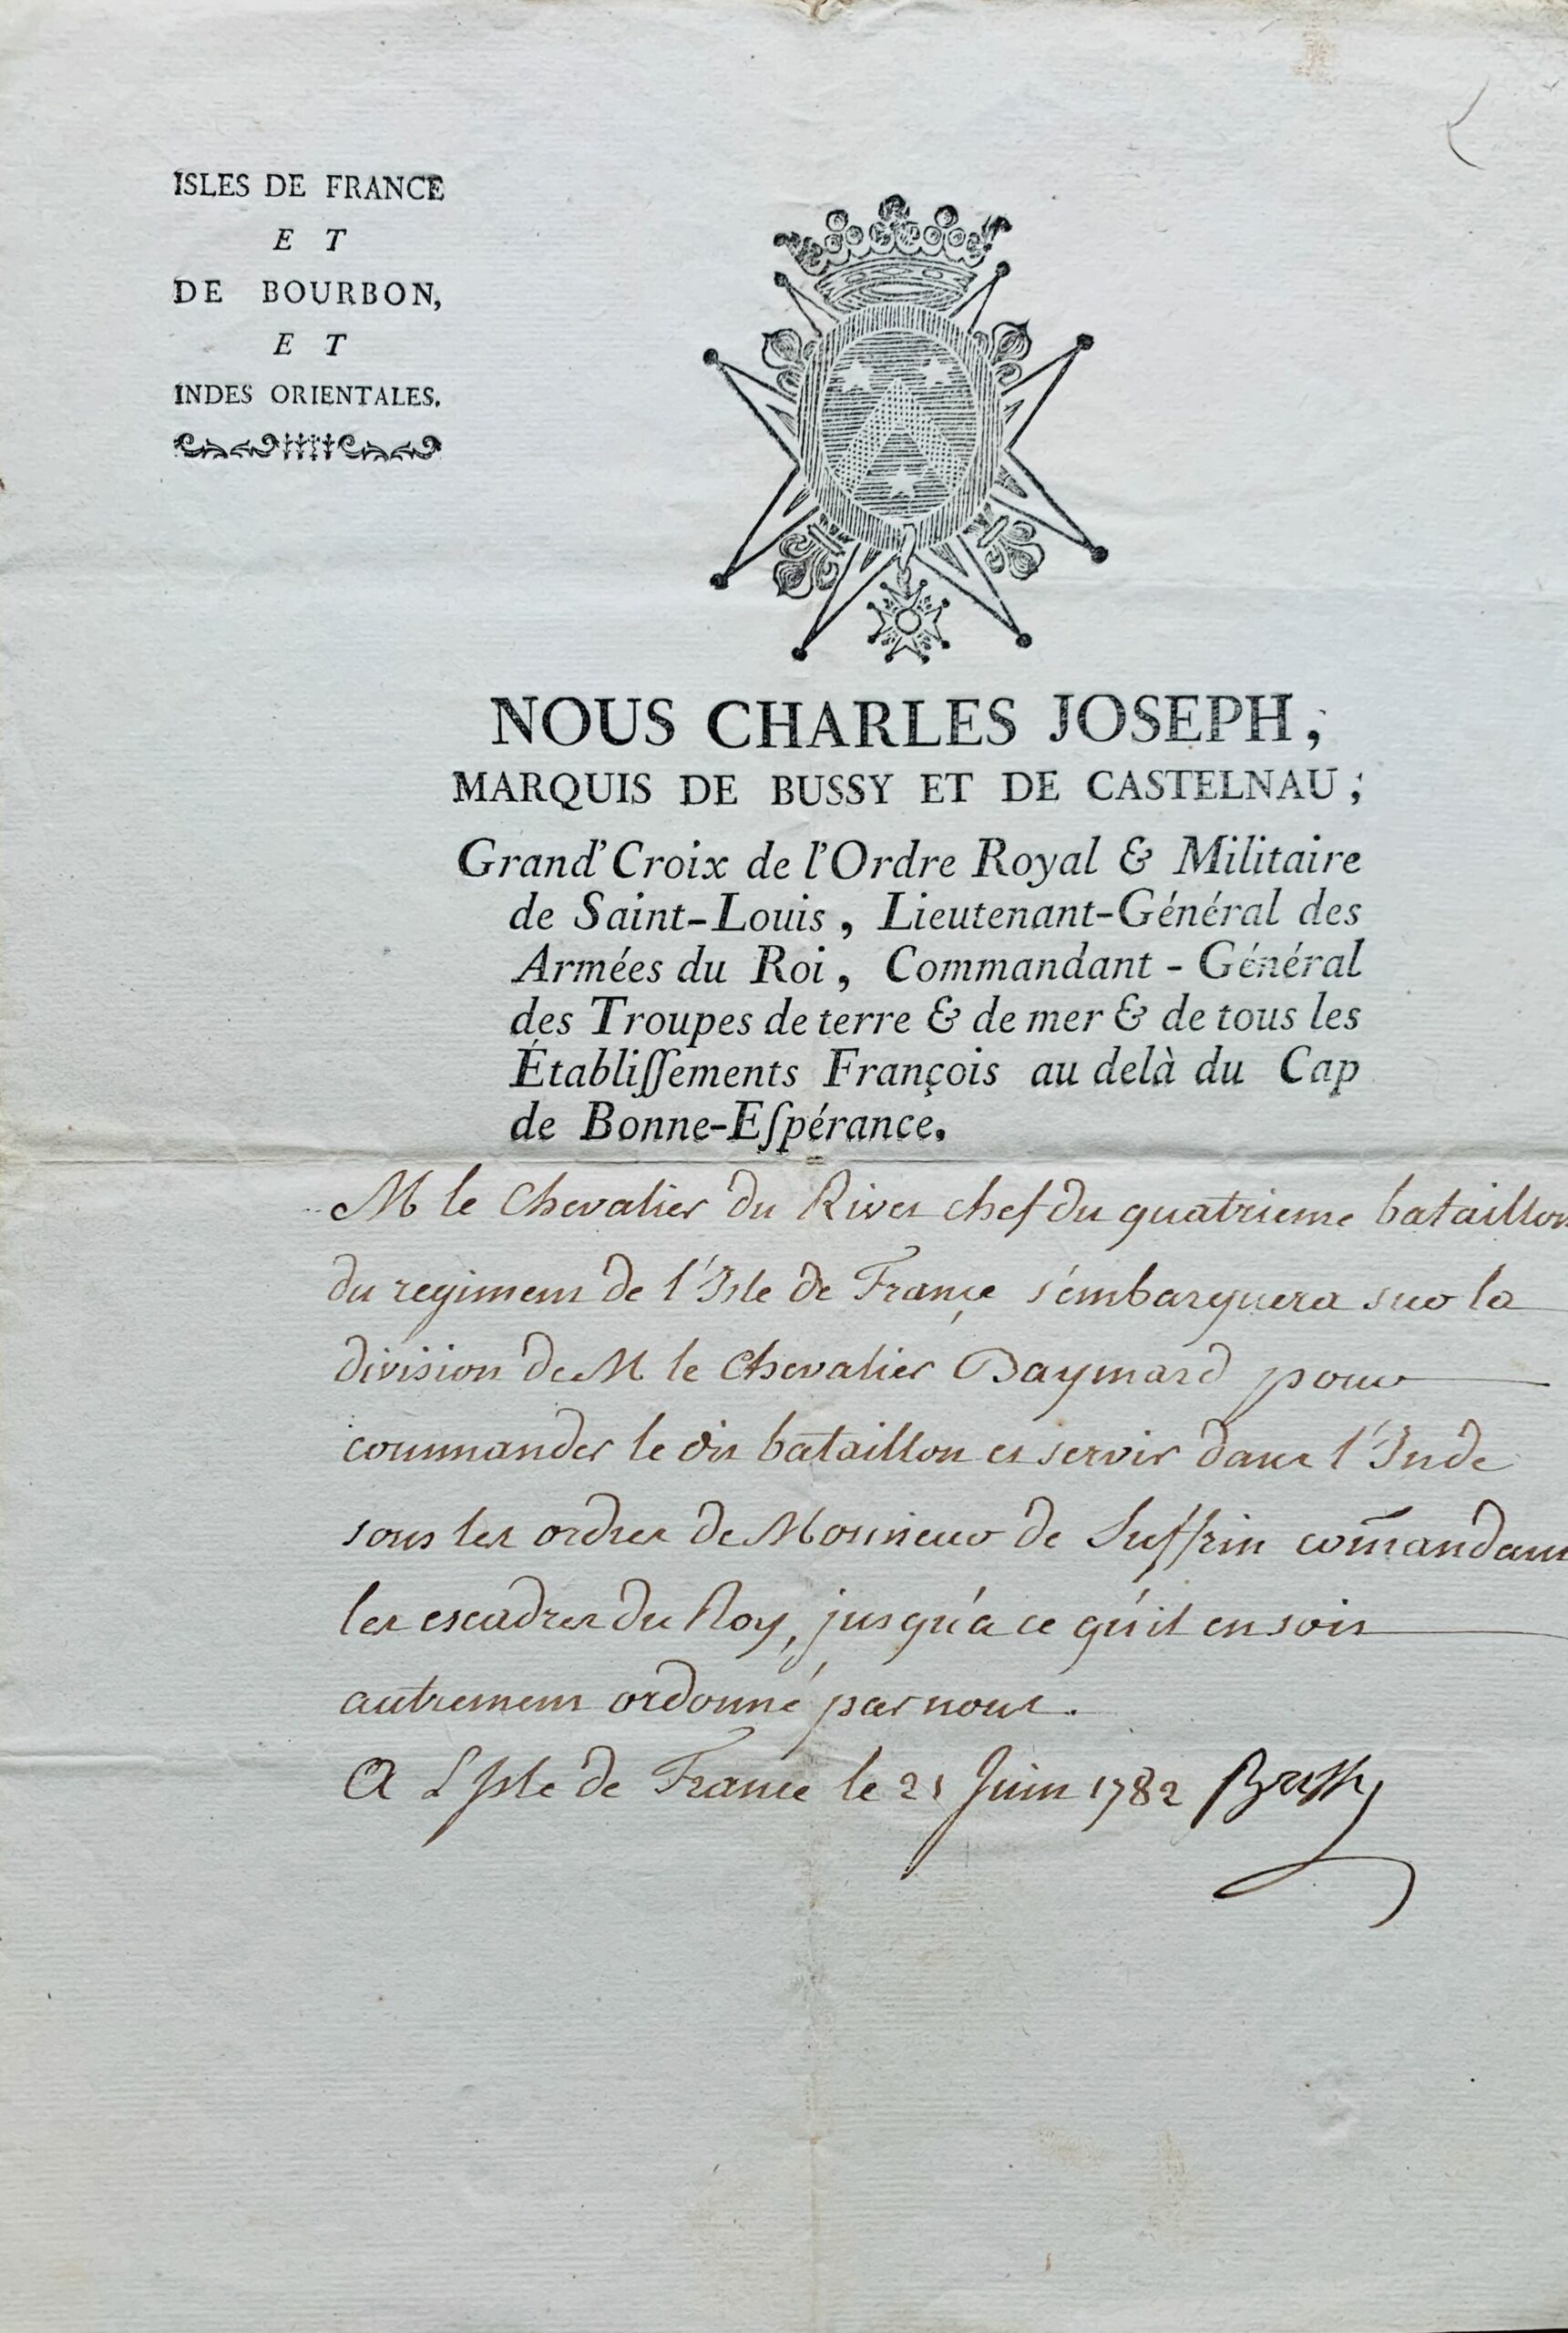 ISLES DE FRANCE
ET
DE BOURBON,
ET
INDES ORIENTALES.
NOUS CHARLES JOSEPH,
MARQUIS DE BUSSY ET DE CASTELNAU;
Grand'Croix de l'Ordre Royal & Militaire
de Saint-Louis, Lieutenant-Général des
Armées du Roi, Commandant-Général
des Troupes de terre & de mer & de tous les
Établiſſements François au delà du Cap
de Bonne-Eſpérance.
M le Chevalier du Rives chef du quatrieme bataillon
du regiment de l'Isle de Françe s'embarquera sur la
division de M le Chevalier Daymard pour
commander le dit bataillon et servir dans l'Inde
sous les ordres de Monsieur de Suffrin com̃andant
les escadres du Roy, jusqu'a ce qu'il en soit
autrement ordonné par nous.
A L'Isle de France le 21 Juin 1782 Bussy